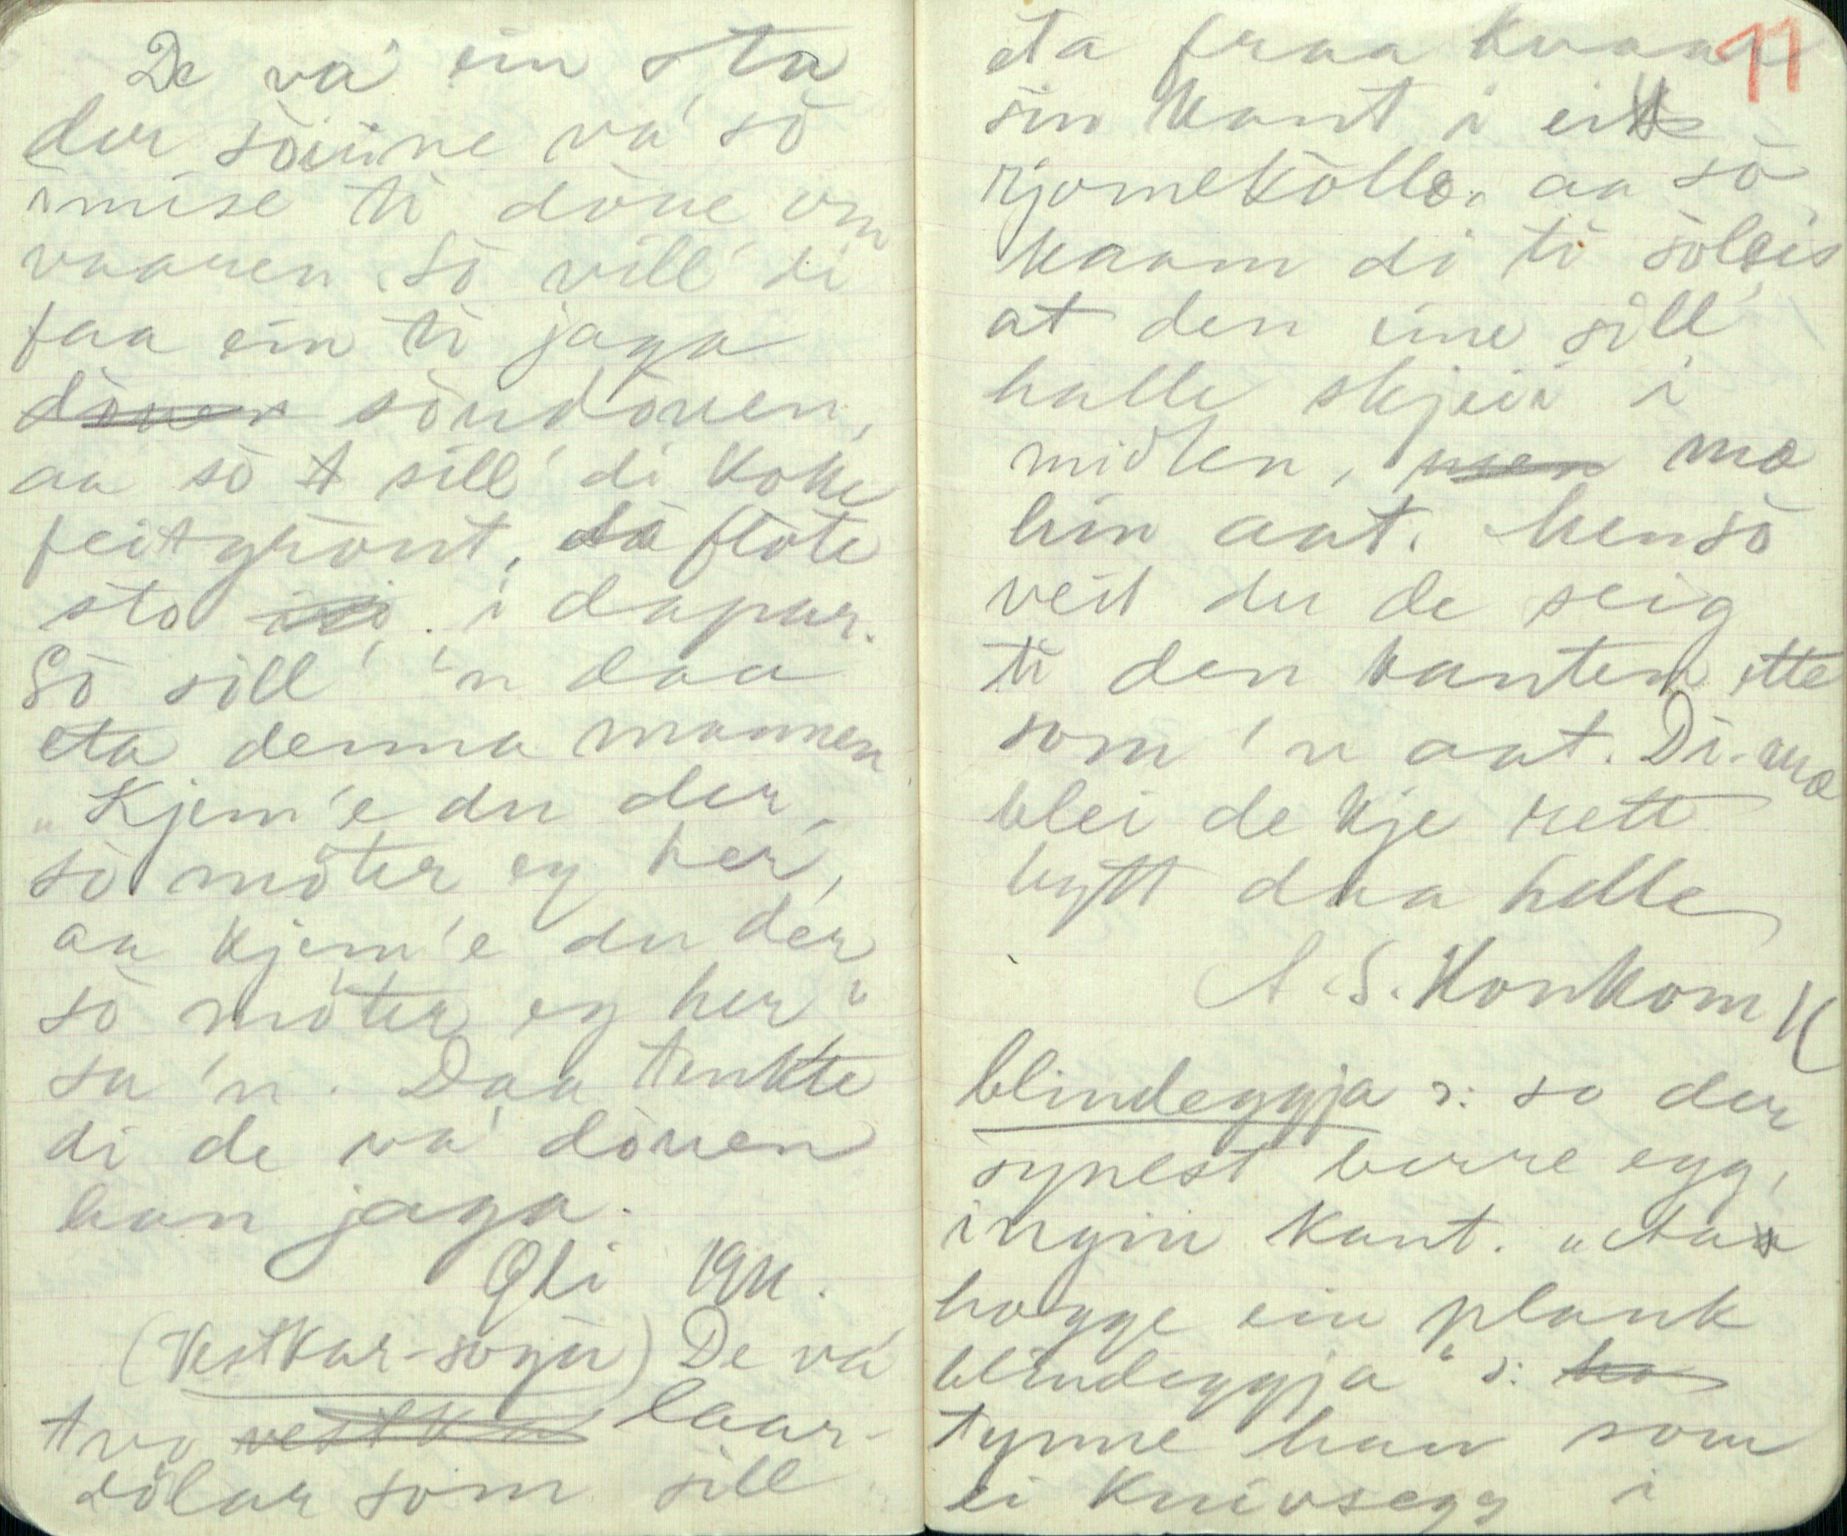 De va' ein sta
der söiine va' sö
ömise ti döue om
vaaren. Sö vill' di
faa ein ti jaga
söudöuen,
aa sö sill' di koke
feitgröut, så flöte
sto i dapar.
Sö sill' 'n daa
eta denna mannen
"Kjem'e du der,
sö möter eg her,
aa kjem'e du der
sö möter eg her"
sa 'n. Daa tenkte
di de va' döuen
han jaga.
Oli 1911.
(Vestkar-sogu) De va'
tvo laar-
dölar som sill
eta fraa kvaar 11
sin kant i ei
rjomekolle. aa sö
kaam di ti söleis
at den eine sill'
halle skjeii i
midten, mæ
hin aat. Men sö
veit du de seig
ti den kanten ette
som 'n aat. Di-mæ
blei de kje rett
bytt daa helle
A. S. Konkom
blindeggja ɔ: so der
synest berre egg,
ingin kant. "Aa
hogge ein plank
blindeggja" ɔ:
tynne han som
ei knivsegg i